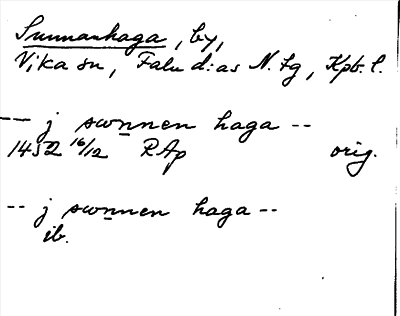 Sunnanhaga, by,
Vika sn, Falu d:as N. tg, Kpb. l.
-- j swnnen haga --
1452 16/12 RAp orig.
-- j swnnen haga --
ib.